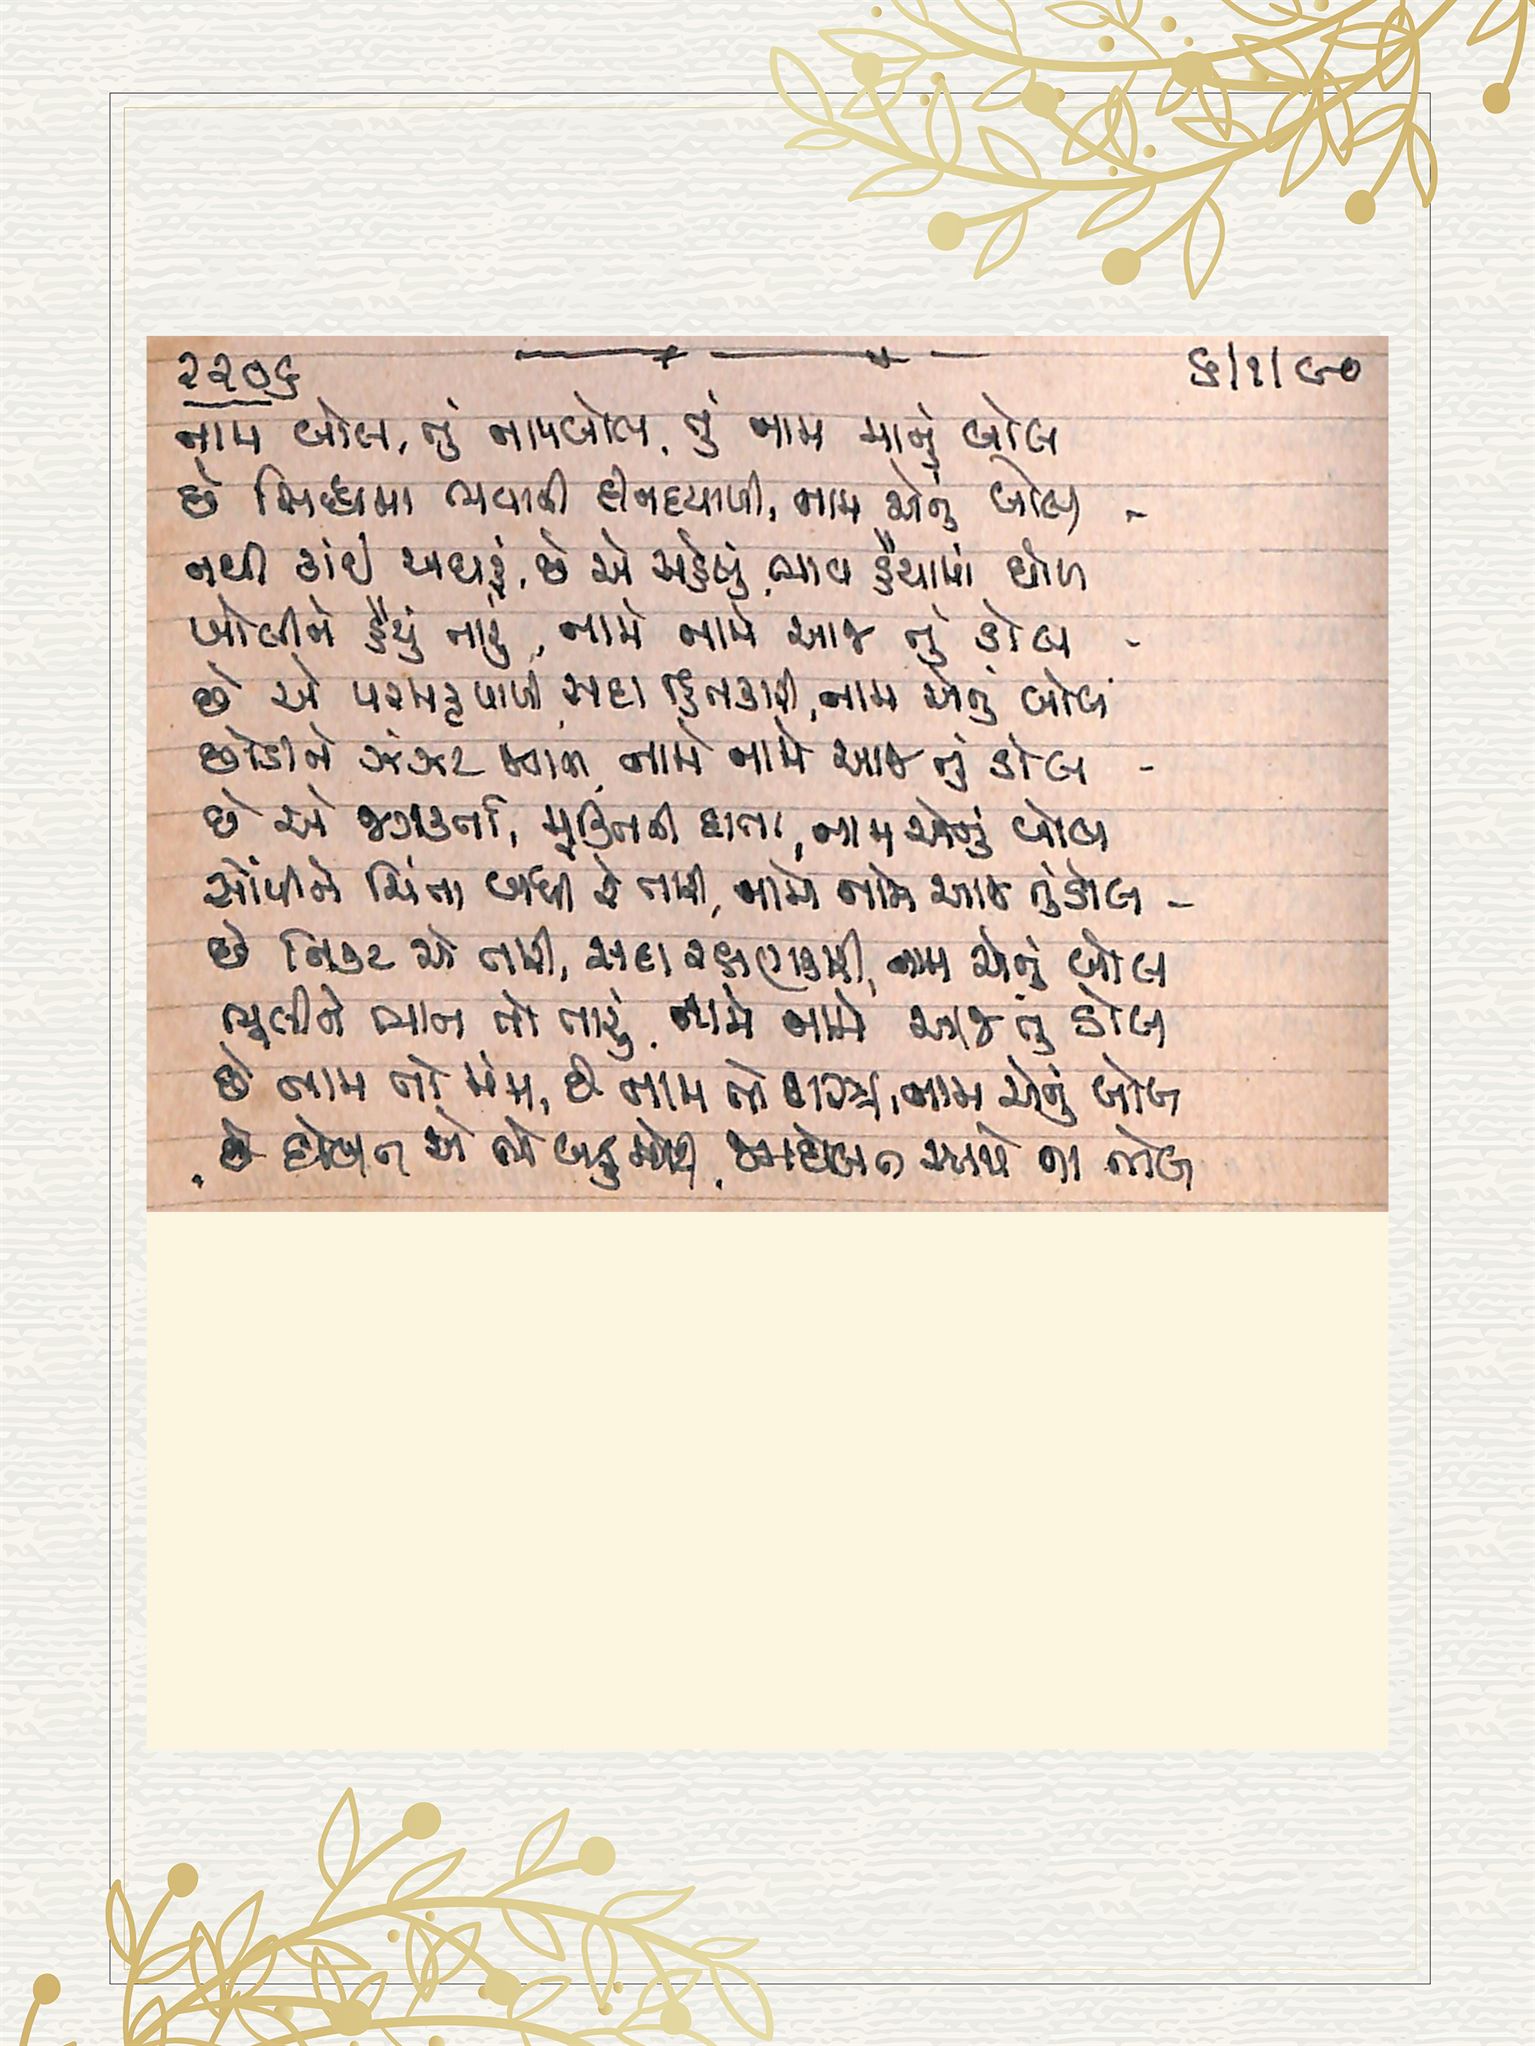 ૨૨૦૬ ૬/૧/૯૦
નામ બોલ, તું નામ બોલ, તું નામ માનું બોલ
છે સિદ્ધમા ભવાની દીનદયાળી, નામ એનું બોલ -
નથી કાંઈ અઘરૂં, છે એ સહેલું, ભાવ હૈયામાં ઘોળ
ખોલીને હૈયું તારું, નામે નામે આજ તું ડોલ -
છે એ પરમકૃપાળી, સદા હિતકારી, નામ એનું બોલ
છોડીને ઝંઝટ બધી, નામે નામે આજ તું ડોલ -
છે એ જગકર્તા, મુક્તિની દાતા, નામ એનું બોલ
સોંપીને ચિંતા બધી રે તારી, નામે નામે આજ તું ડોલ -
છે નિકટ એ તારી, સદા રક્ષણકારી, નામ એનું બોલ
ભૂલીને ભાન તો તારું, નામે નામે આજ તું ડોલ
છે નામ તો મંત્ર, છે નામ તો શસ્ત્ર, નામ એનું બોલ
છે દોલત એ તો બહુ મોટી, દોલત આપે ના તોલ